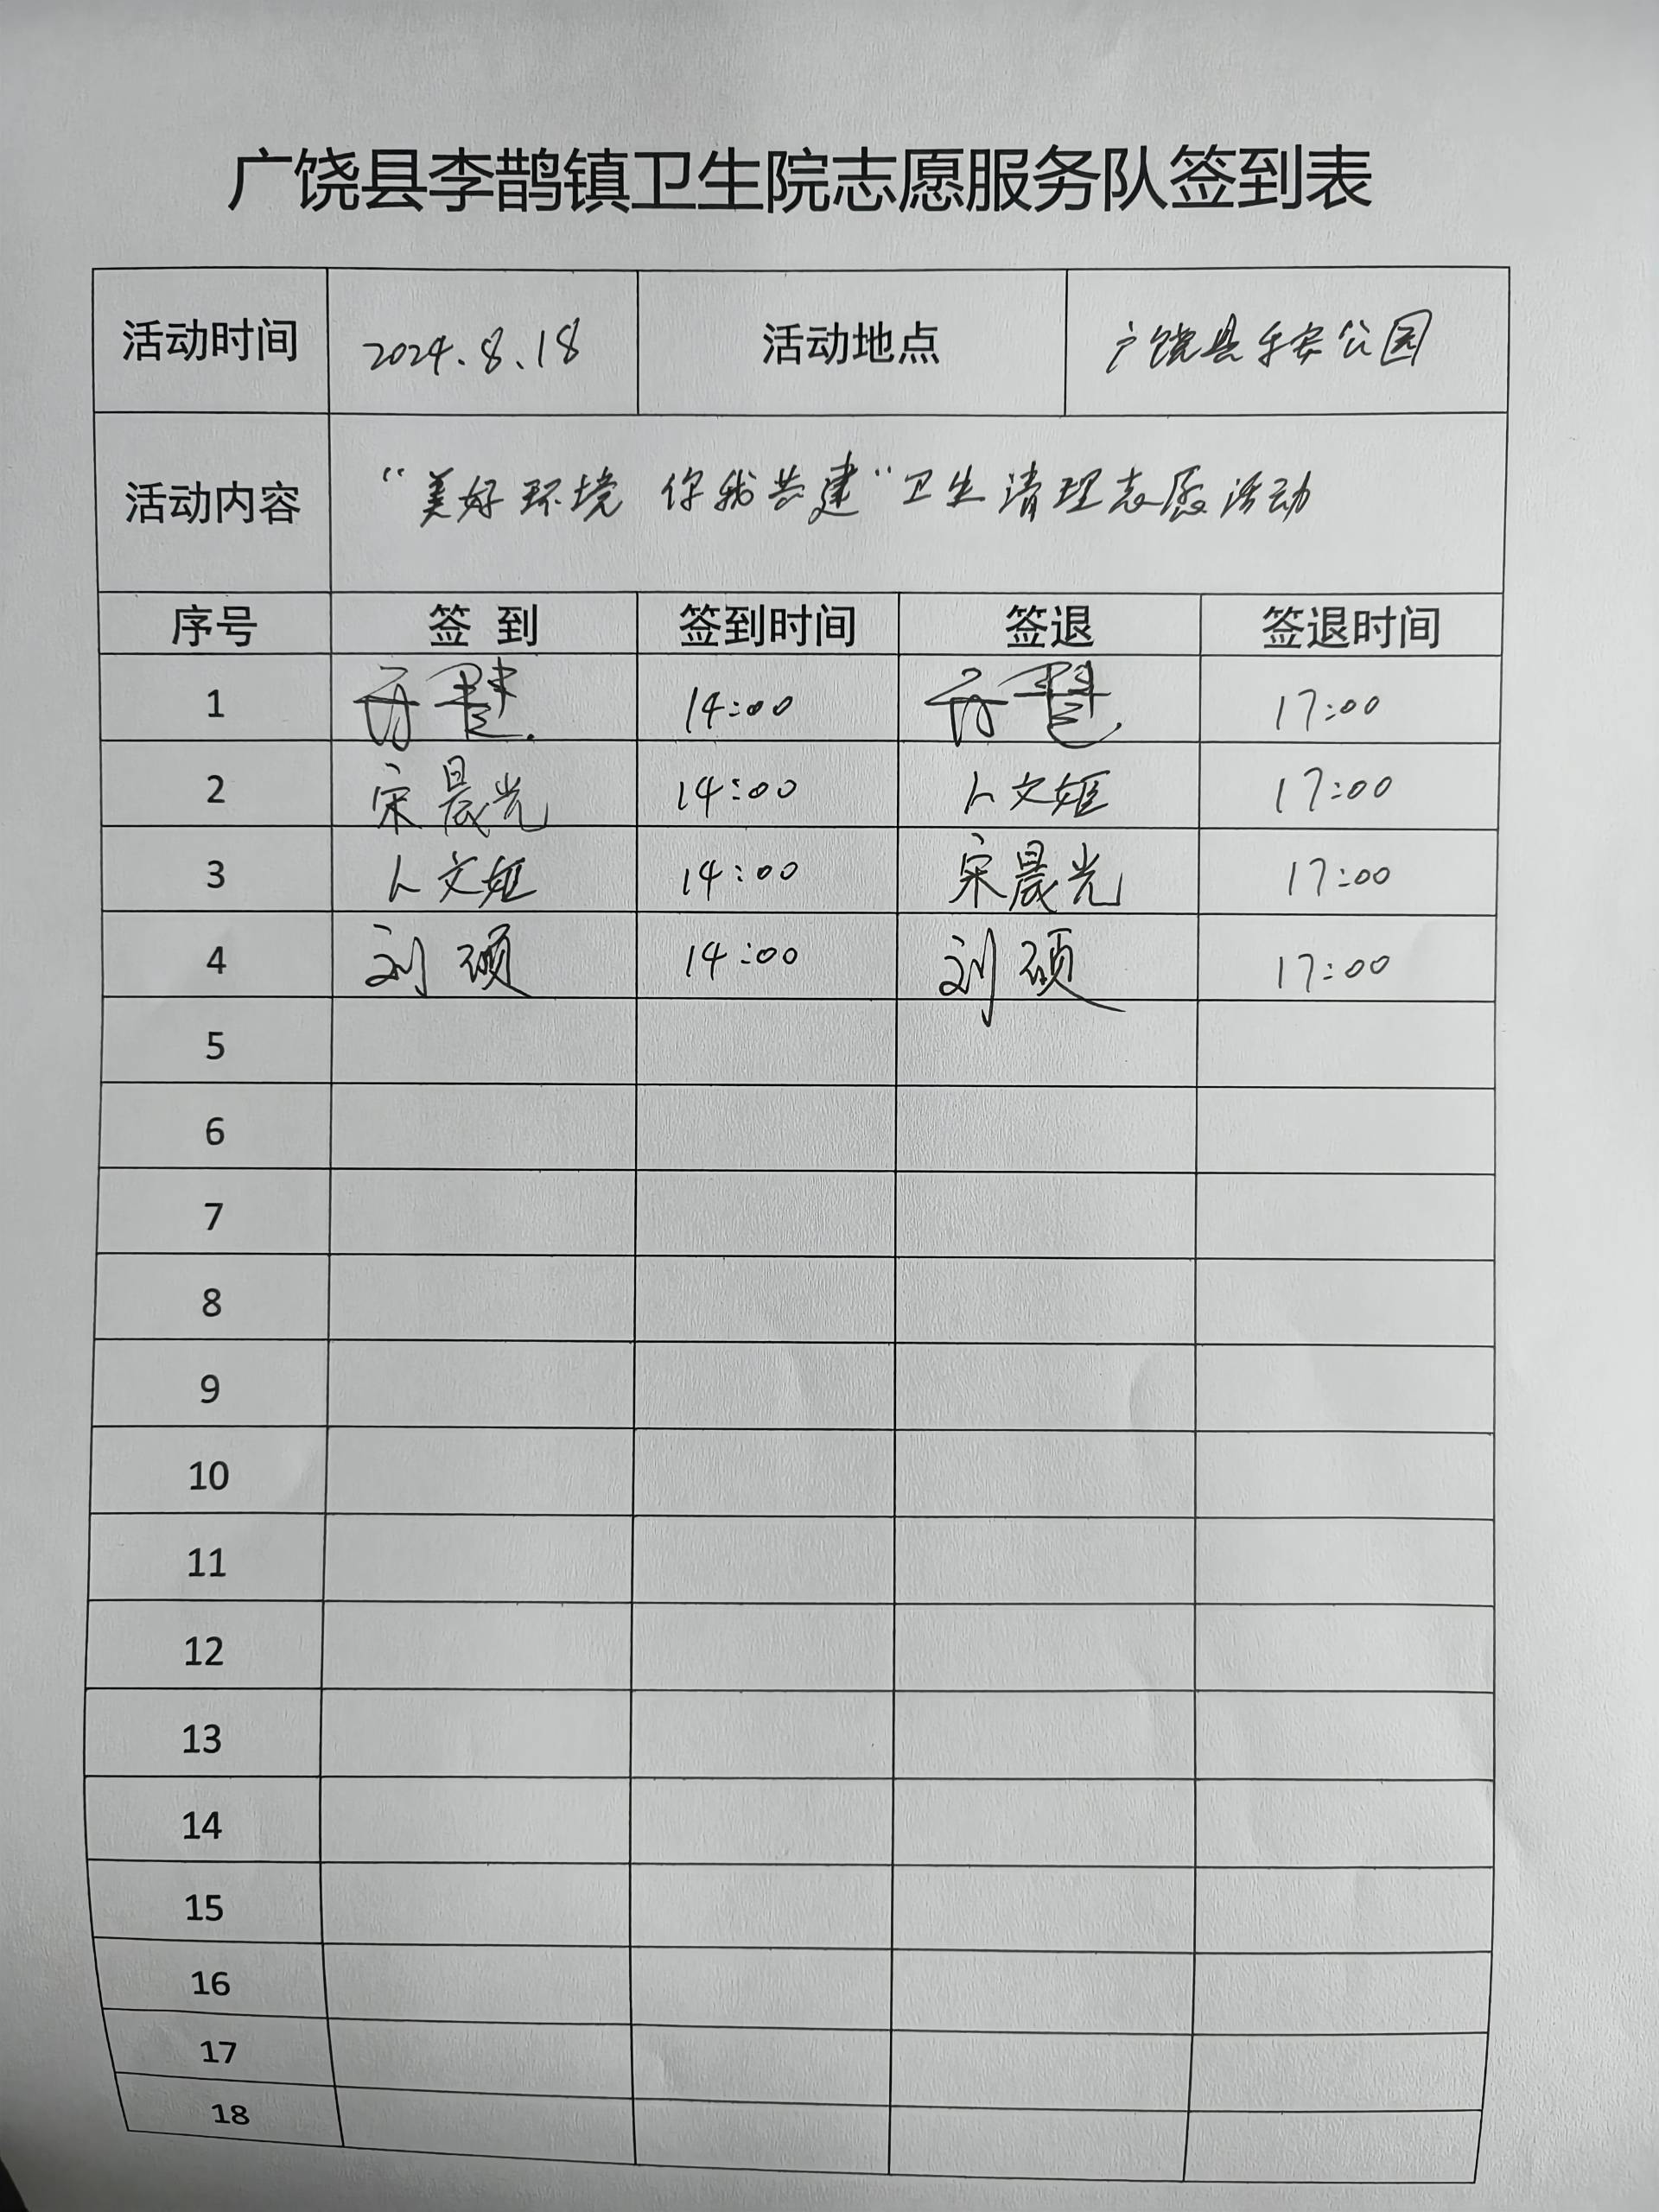 广饶县李鹊镇卫生院志愿服务队签到表
活动时间 2024.8.18 活动地点 广饶县乐安公园
活动内容 “美好环境 你我共建”卫生清理志愿活动
序号 签 到 签到时间 签退 签退时间
1 14:00 17:00
2 宋晨光 14:00 卜文姬 17:00
3 卜文姬 14:00 宋晨光 17:00
4 刘硕 14:00 刘硕 17:00
5
6
7
8
9
10
11
12
13
14
15
16
17
18